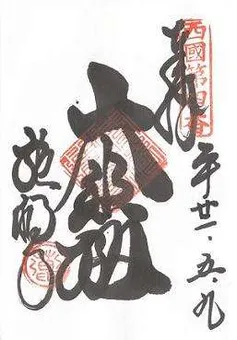 西國第四番
奉拝
平廿一・五・九
大悲殿
施福寺